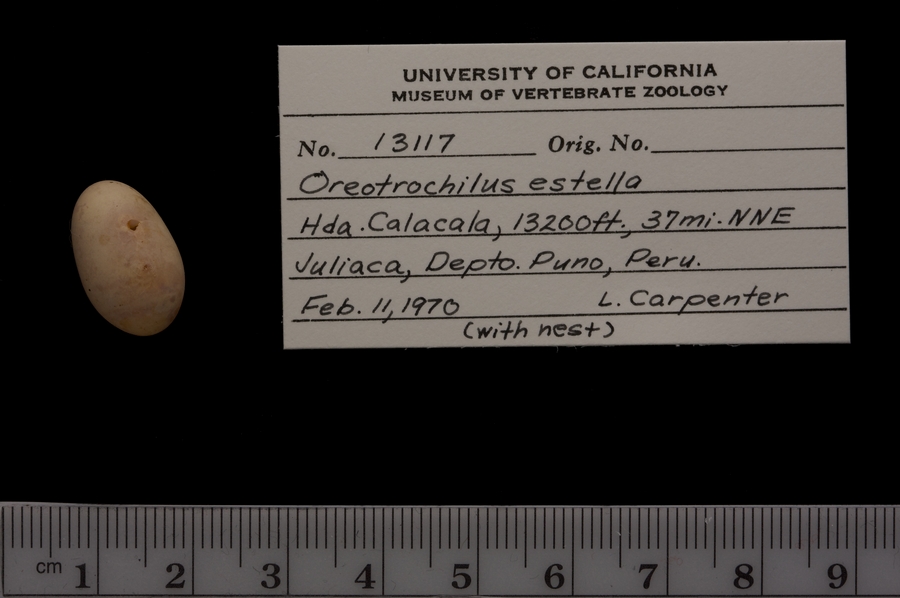 UNIVERSITY OF CALIFORNIA
MUSEUM OF VERTEBRATE ZOOLOGY
No. 13117 Orig. No.
Oreotrochilus estella
Hda. Calacala, 13200ft., 37mi. NNE
Juliaca, Depto. Puno, Peru.
Feb. 11, 1970 L. Carpenter
(with nest)
cm 1 2 3 4 5 6 7 8 9